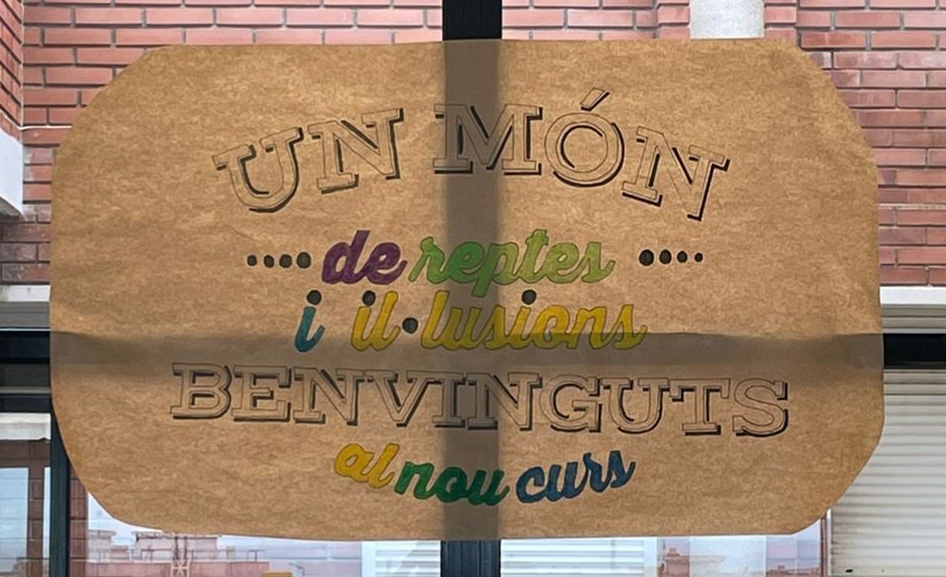 UN MÓN
....de reptes....
i il·lusions
BENVINGUTS
al nou curs